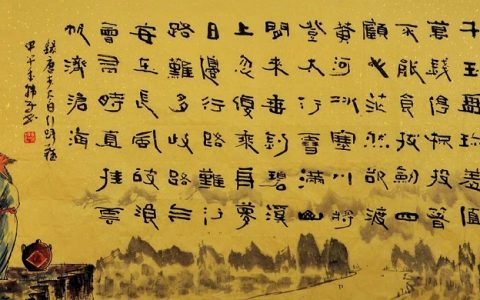 千玉盤珎羞值
萬錢停杯投筯
不能食拔劍四
顧心茫然欲渡
黃河冰塞川將
登太行雪滿山
閒来垂釣碧溪
上忽復乘舟夢
日邊行路難行
路難多岐路今
安在長風破浪
會有時直挂雲
帆濟滄海
錄唐李太白行路難
甲午年